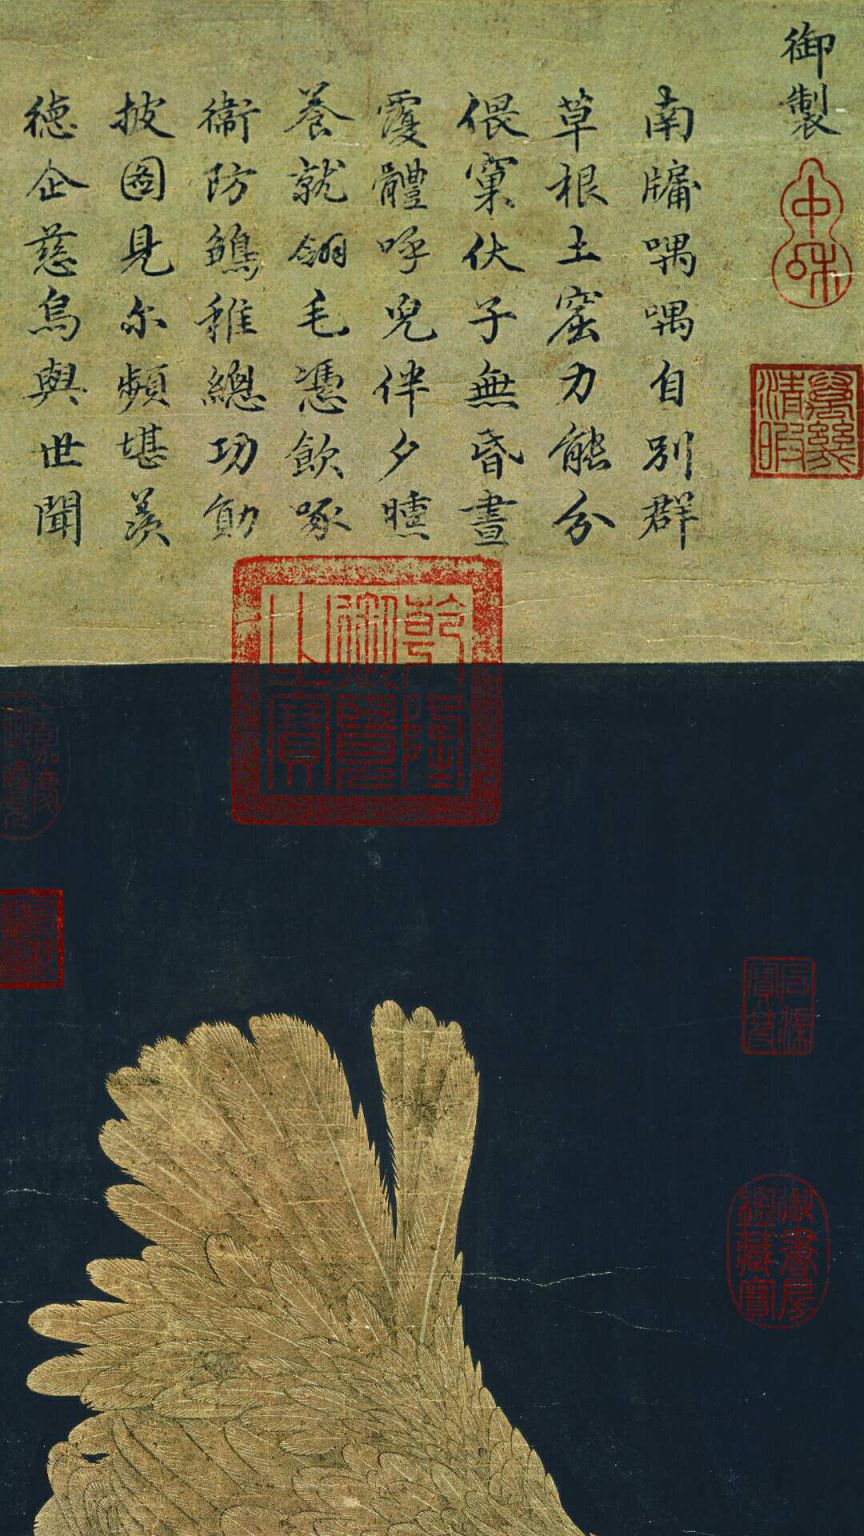 御製
南牖喁喁自別群
草根土窟力能分
偎窠伏子無昏晝
覆體呼兒伴夕曛
養就翎毛憑飲啄
衞防鶵稚總功勛
披圖見尓頻堪羨
德企慈烏與世聞
中和
萬幾清暇
乾隆御覽之寶
石渠寶笈
御書房鑑藏寶